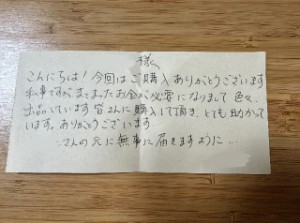 様へ
こんにちは!今回はご購入ありがとうございます
私事ですがまとまったお金が必要になりまして色々
出品しています 皆さんに購入して頂き、とても助かって
います。ありがとうございます
さんの元に無事に届きますように…